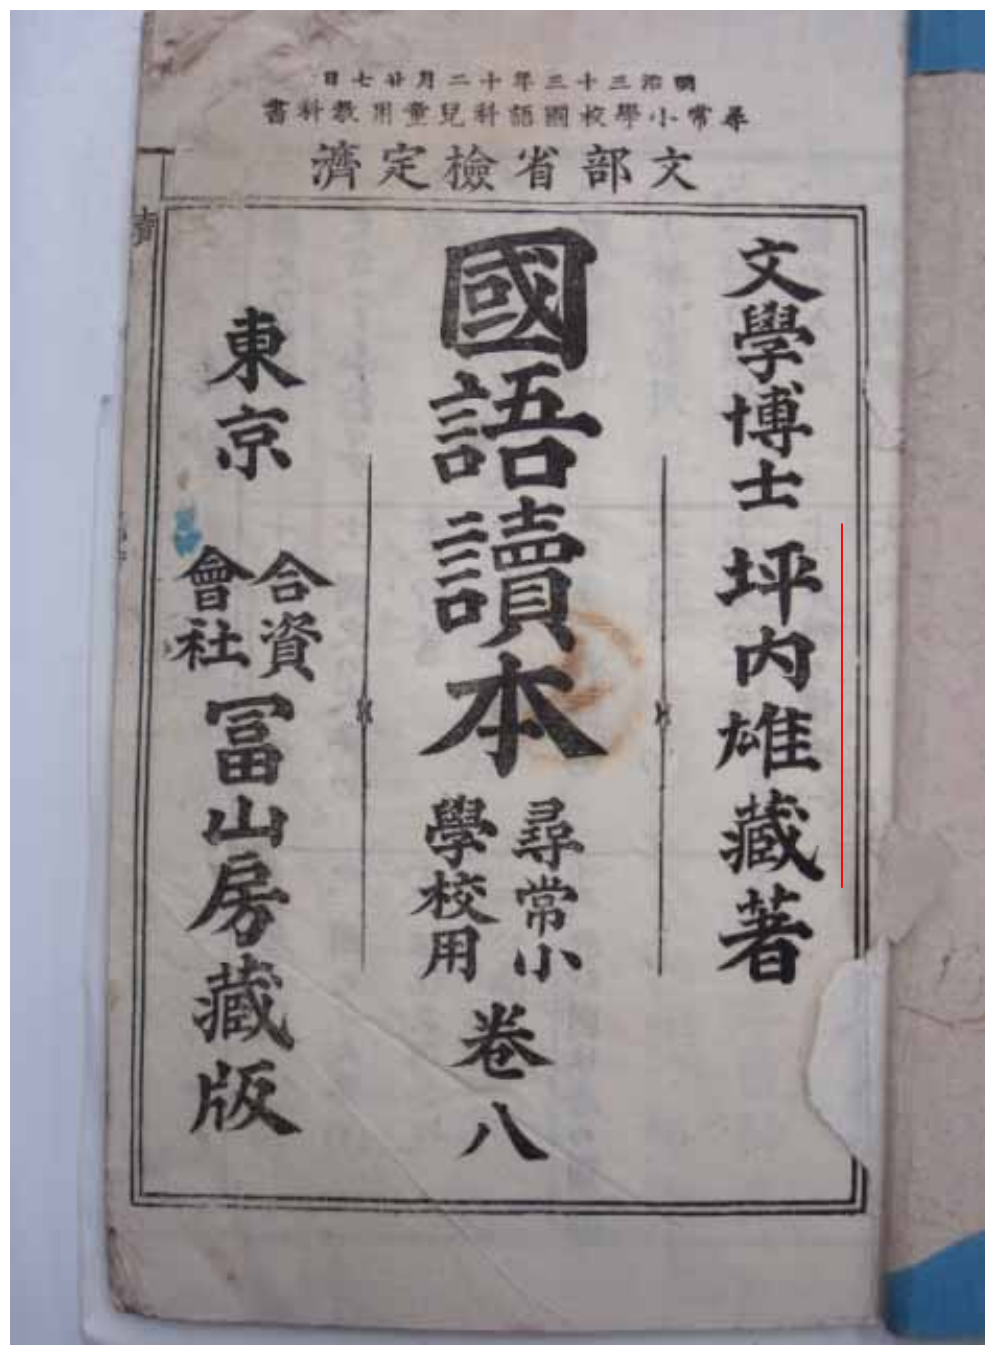 明治三十三年十二月廿七日
尋常小學校國語科兒童用教科書
文部省檢定濟
文學博士 坪内雄藏著
國語讀本 尋常小學校用 卷八
東京 合資會社 冨山房藏版